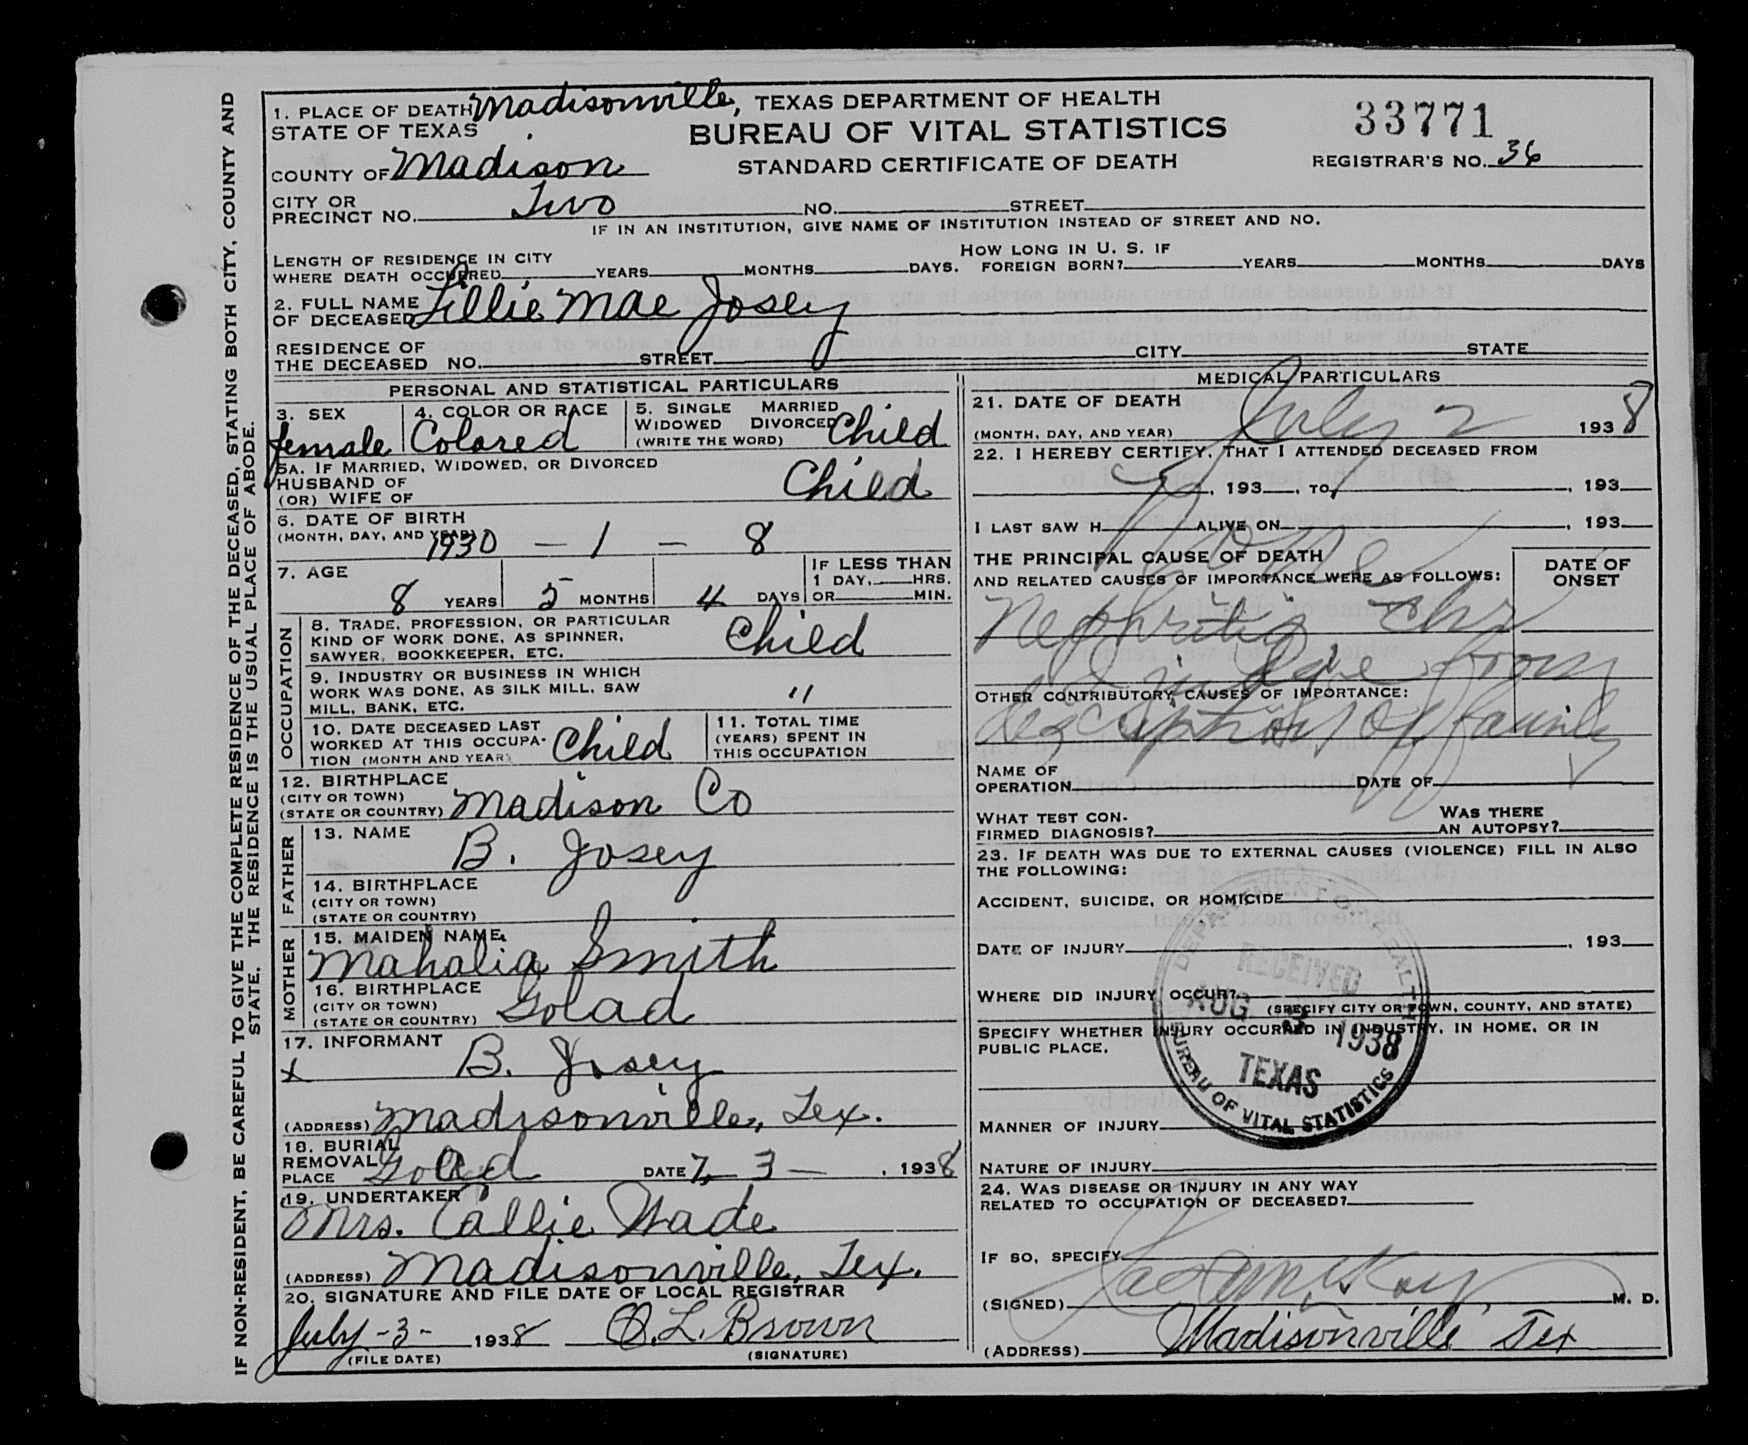 IF NON-RESIDENT, BE CAREFUL TO GIVE THE COMPLETE RESIDENCE OF THE DECEASED, STATING BOTH CITY, COUNTY AND
STATE. THE RESIDENCE IS THE USUAL PLACE OF ABODE.
1. PLACE OF DEATH Madisonville, TEXAS DEPARTMENT OF HEALTH
STATE OF TEXAS BUREAU OF VITAL STATISTICS 33771
COUNTY OF Madison STANDARD CERTIFICATE OF DEATH REGISTRAR'S NO. 36
CITY OR
PRECINCT NO. Two NO. STREET
IF IN AN INSTITUTION, GIVE NAME OF INSTITUTION INSTEAD OF STREET AND NO.
LENGTH OF RESIDENCE IN CITY HOW LONG IN U. S. IF
WHERE DEATH OCCURRED YEARS MONTHS DAYS. FOREIGN BORN? YEARS MONTHS DAYS
2. FULL NAME
OF DECEASED Lillie Mae Josey
RESIDENCE OF
THE DECEASED NO. STREET CITY STATE
PERSONAL AND STATISTICAL PARTICULARS
3. SEX 4. COLOR OR RACE 5. SINGLE MARRIED
WIDOWED DIVORCED
female Colored (WRITE THE WORD) Child
5A. IF MARRIED, WIDOWED, OR DIVORCED
HUSBAND OF
(OR) WIFE OF Child
6. DATE OF BIRTH
(MONTH, DAY, AND YEAR) 1930 — 1 — 8
7. AGE IF LESS THAN
1 DAY, HRS.
8 YEARS 5 MONTHS 4 DAYS OR MIN.
OCCUPATION
8. TRADE, PROFESSION, OR PARTICULAR
KIND OF WORK DONE, AS SPINNER,
SAWYER, BOOKKEEPER, ETC. Child
9. INDUSTRY OR BUSINESS IN WHICH
WORK WAS DONE, AS SILK MILL, SAW
MILL, BANK, ETC. "
10. DATE DECEASED LAST 11. TOTAL TIME
WORKED AT THIS OCCUPA- (YEARS) SPENT IN
TION (MONTH AND YEAR) Child THIS OCCUPATION
12. BIRTHPLACE
(CITY OR TOWN)
(STATE OR COUNTRY) Madison Co
FATHER
13. NAME B. Josey
14. BIRTHPLACE
(CITY OR TOWN)
(STATE OR COUNTRY)
MOTHER
15. MAIDEN NAME
Mahalia Smith
16. BIRTHPLACE
(CITY OR TOWN)
(STATE OR COUNTRY) Golad
17. INFORMANT
x B. Josey
(ADDRESS) Madisonville, Tex.
18. BURIAL
REMOVAL
PLACE Golad DATE 7 — 3 — , 1938
19. UNDERTAKER
Mrs. Callie Wade
(ADDRESS) Madisonville, Tex.
20. SIGNATURE AND FILE DATE OF LOCAL REGISTRAR
July - 3 - 1938 O. L. Brown
(FILE DATE) (SIGNATURE)
MEDICAL PARTICULARS
21. DATE OF DEATH
(MONTH, DAY, AND YEAR) July 2 1938
22. I HEREBY CERTIFY, THAT I ATTENDED DECEASED FROM
, 193 , TO , 193
I LAST SAW H ALIVE ON , 193
THE PRINCIPAL CAUSE OF DEATH DATE OF
AND RELATED CAUSES OF IMPORTANCE WERE AS FOLLOWS: ONSET
Nephritis, chr
from
OTHER CONTRIBUTORY CAUSES OF IMPORTANCE:
description of family
NAME OF
OPERATION DATE OF
WHAT TEST CON- WAS THERE
FIRMED DIAGNOSIS? AN AUTOPSY?
23. IF DEATH WAS DUE TO EXTERNAL CAUSES (VIOLENCE) FILL IN ALSO
THE FOLLOWING:
ACCIDENT, SUICIDE, OR HOMICIDE
DATE OF INJURY , 193
WHERE DID INJURY OCCUR?
(SPECIFY CITY OR TOWN, COUNTY, AND STATE)
SPECIFY WHETHER INJURY OCCURRED IN INDUSTRY, IN HOME, OR IN
PUBLIC PLACE.
DEPARTMENT OF HEALTH
RECEIVED
AUG 3 1938
TEXAS
BUREAU OF VITAL STATISTICS
MANNER OF INJURY
NATURE OF INJURY
24. WAS DISEASE OR INJURY IN ANY WAY
RELATED TO OCCUPATION OF DECEASED?
IF SO, SPECIFY
(SIGNED) M. D.
(ADDRESS) Madisonville Tex